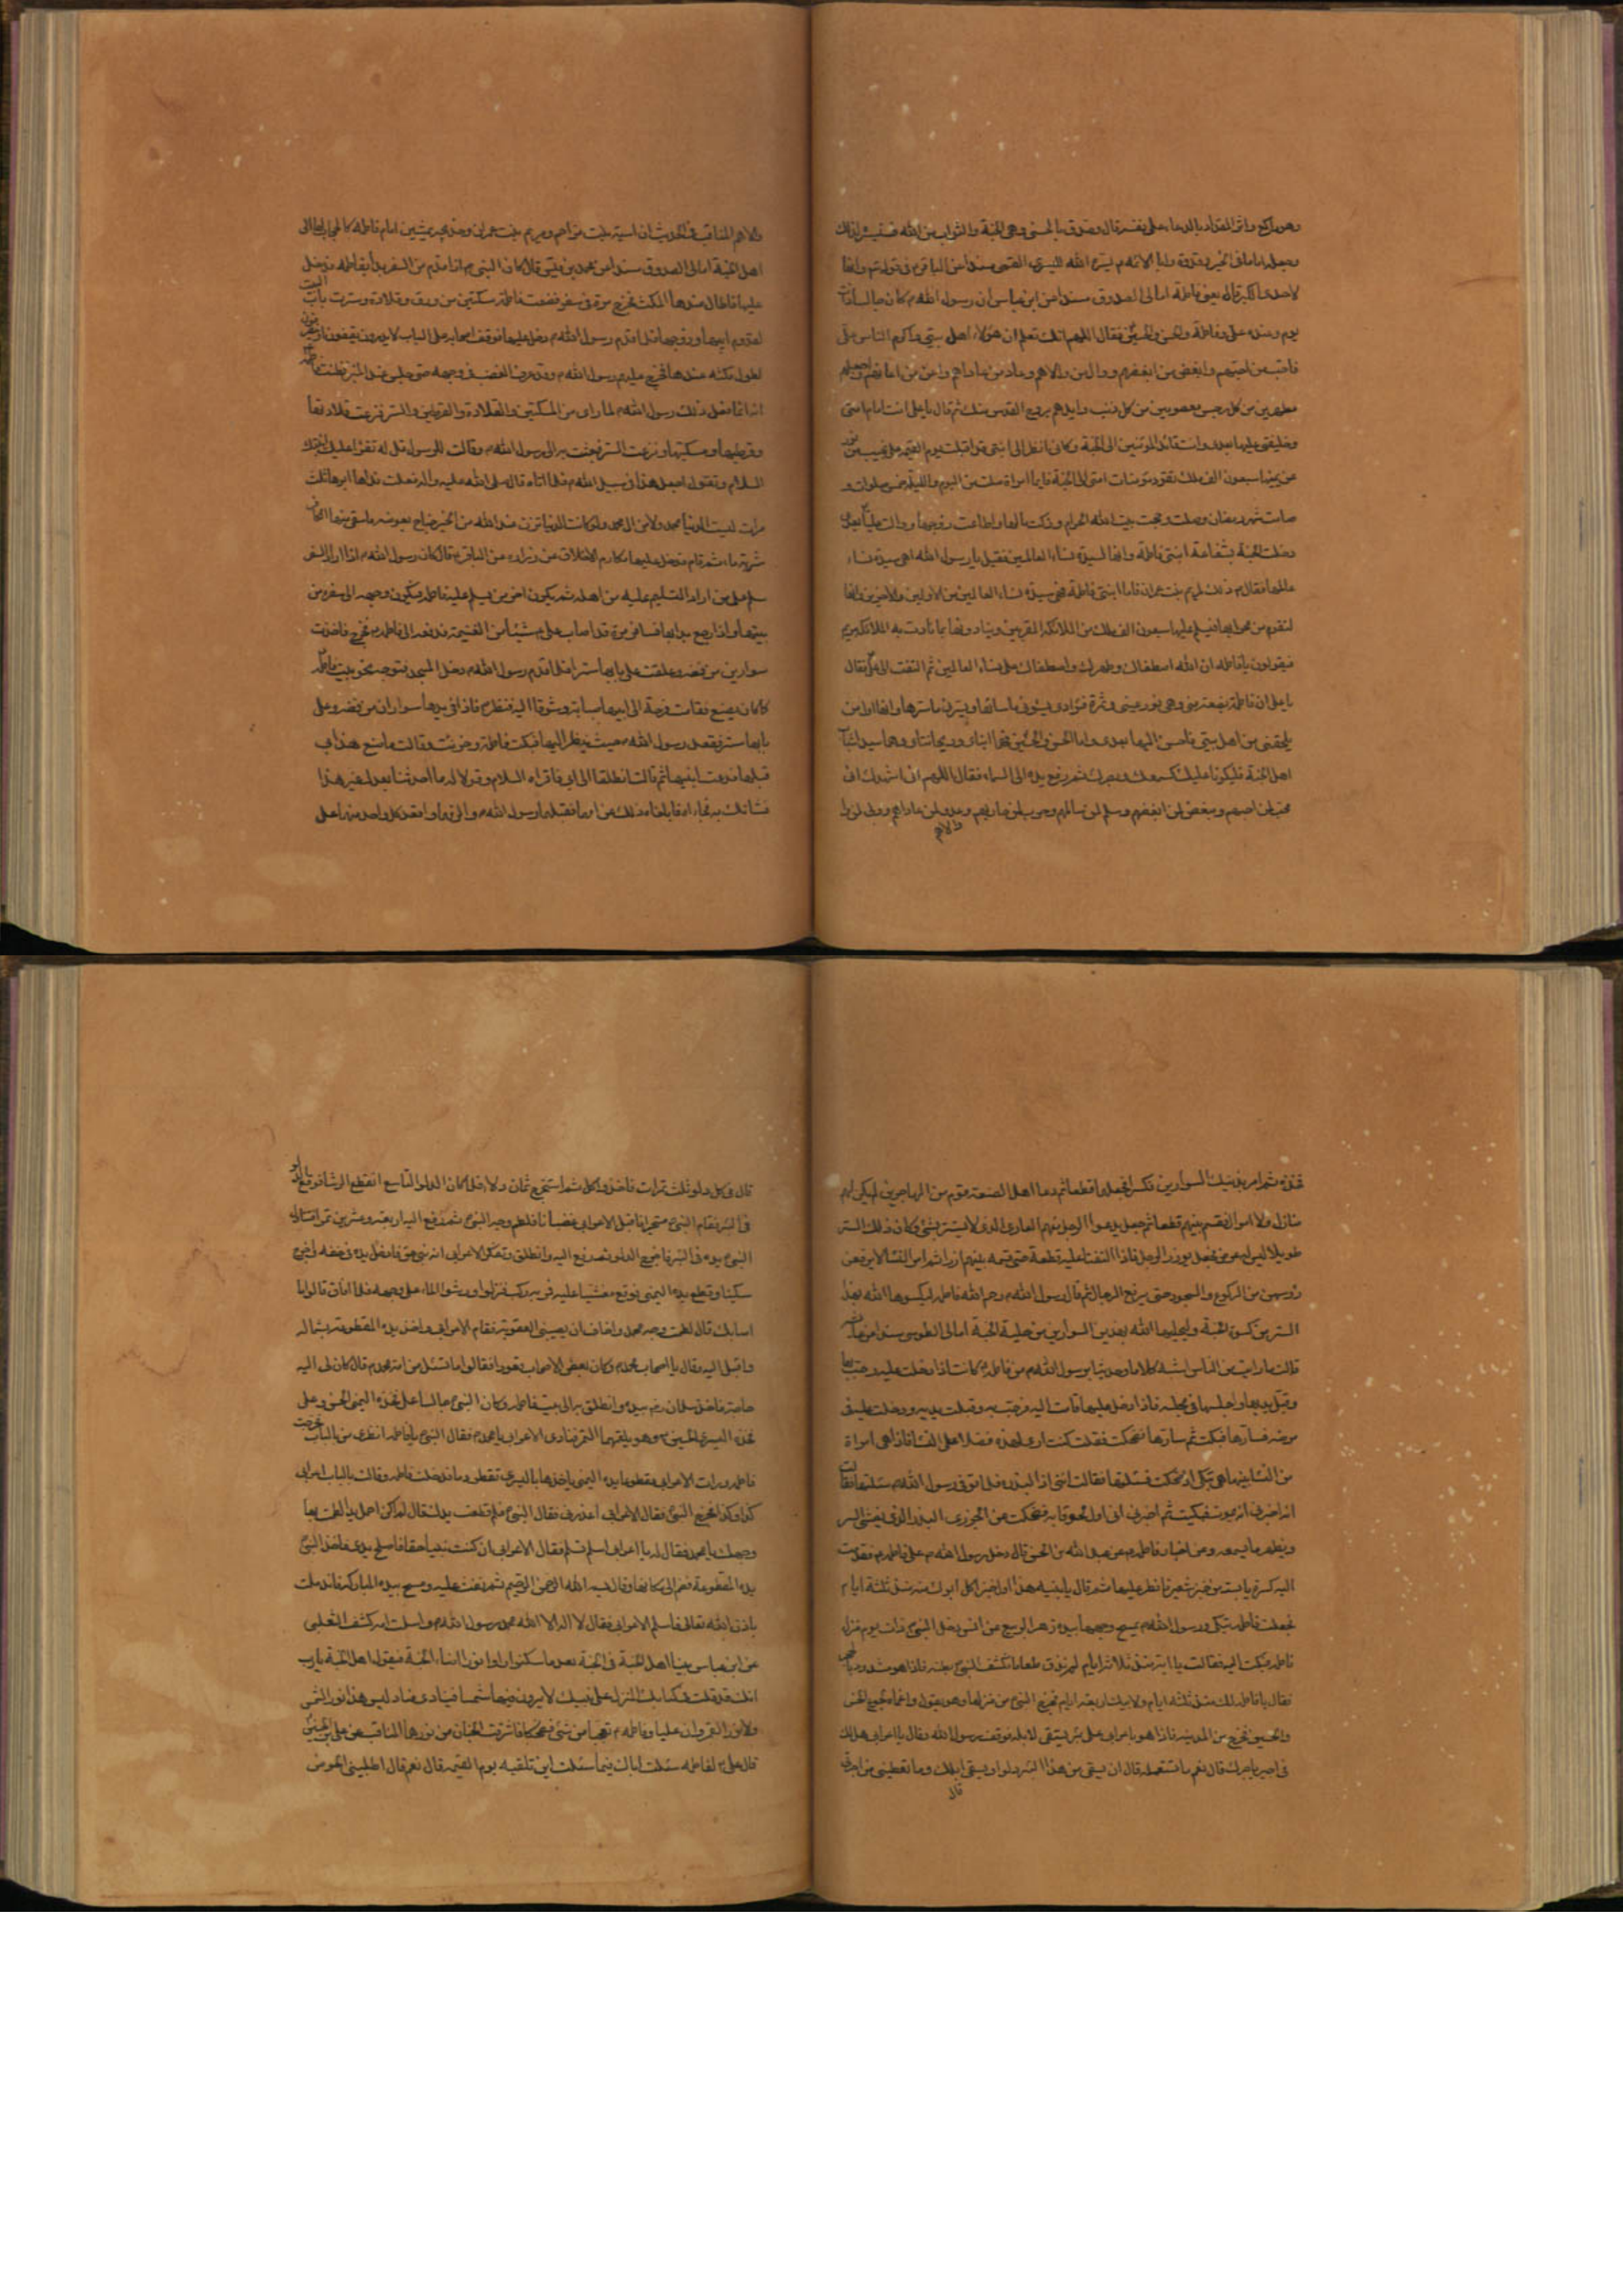 وهو راكع واثر المقداد بالدعاء على نفسه قال وصدق بالحسنى وهى الجنة والثواب من الله فسنيسره لذلك
وجعله اماما فى الخير وقدوة وابا الائمة ع يسره الله لليسرى القمى مسندا عن الباقر ع فى قوله تع وانها
لاحدى الكبر قال يعنى فاطمة امالى الصدوق مسندا عن ابن عباس ان رسول الله ص كان جالسا ذات
يوم وعنده على وفاطمة والحسن والحسين فقال اللهم انك تعلم ان هؤلاء اهل بيتى واكرم الناس على
فاحبب من احبهم وابغض من ابغضهم ووال من والاهم وعاد من عاداهم واعن من اعانهم واجعلهم
مطهرين من كل رجس معصومين من كل ذنب وايدهم بروح القدس منك ثم قال يا على انت امام امتى
وخليفتى عليها بعدى وانت قائد المؤمنين الى الجنة وكانى انظر الى ابنتى قد اقبلت يوم القيمة على نجيب من نور
عن يمينها سبعون الف ملك تقود مؤمنات امتى الى الجنة فايما امراة صلت من اليوم والليلة خمس صلوات و
صامت شهر رمضان وحجت بيت الله الحرام وزكت مالها واطاعت زوجها ووالت عليا بعدى
دخلت الجنة بشفاعة ابنتى فاطمة وانها لسيدة نساء العالمين فقيل يا رسول الله اهى سيدة نساء
عالمها فقال ص ذلك لمريم بنت عمران فاما ابنتى فاطمة فهى سيدة نساء العالمين من الاولين والاخرين وانها
لتقوم من محرابها فيسلم عليها سبعون الف ملك من الملائكة المقربين وينادونها بما نادت به الملائكة مريم
فيقولون يا فاطمة ان الله اصطفاك وطهرك واصطفاك على نساء العالمين ثم التفت الى على فقال
يا على ان فاطمة بضعة منى وهى نور عينى وثمرة فؤادى يسوئنى ما سائها ويسرنى ما سرها وانها اول من
يلحقنى من اهل بيتى فاحسن اليها بعدى واما الحسن والحسين فهما ابناى وريحانتاى وهما سيدا شباب
اهل الجنة فليكونا عليك كسمعك وبصرك ثم رفع يده الى السماء فقال اللهم انى اشهدك انى
محب لمن احبهم ومبغض لمن ابغضهم وسلم لمن سالمهم وحرب لمن حاربهم وعدو لمن عاداهم وولى لمن وا
والاهم
والاهم المناقب فى الحديث ان اسية بنت مزاحم ومريم بنت عمران وخديجة يمشين امام فاطمة كالحجاب لها الى
اهل الجنة امالى الصدوق مسندا عن محمد بن قيس قال كان النبى ص اذا قدم من السفر بدا بفاطمة فدخل
عليها فاطال عندها المكث فخرج مرة فى سفر فصنعت فاطمة مسكتين من ورق وقلادة وسترت باب البيت
لقدوم ابيها وزوجها فلما قدم رسول الله ص دخل عليها فوقف اصحابه على الباب لا يدرون يقفون او ينصرفون
لطول مكثه عندها فخرج عليهم رسول الله ص وقد عرف الغضب فى وجهه حتى جلس عند المنبر فظنت فاطمة
انه انما فعل ذلك رسول الله ص لما راى من المسكتين والقلادة والقرطين والستر فنزعت قلادتها
وقرطيها ومسكتيها ونزعت الستر فبعثت به الى رسول الله ص وقالت للرسول قل له تقرا عليك ابنتك
السلام وتقول اجعل هذا فى سبيل الله ص فلما اتاه قال صلى الله عليه واله فعلت فداها ابوها ثلث
مرات ليست الدنيا من محمد ولا من ال محمد ولو كانت الدنيا تزن عند الله من الخير جناح بعوضه ما سقى منها الكافر
شربة ماء ثم قام فدخل عليها مكارم الاخلاق عن زرارة عن الباقر ع قال كان رسول الله ص اذا اراد السفر
سلم على من اراد التسليم عليه من اهله ثم يكون اخر من يسلم عليه فاطمه فيكون وجهه الى سفره من
بيتها واذا رجع بدا بها فسافر مرة وقد اصاب على ع شيئا من الغنيمة فدفعه الى فاطمه ع فخرج فاخذت
سوارين من فضه وعلقت على بابها سترا فلما قدم رسول الله ص دخل المسجد فتوجه نحو بيت فاطمه
كما كان يصنع فقامت فرحة الى ابيها صبابة وشوقا اليه فنظر ص فاذا فى يدها سواران من فضه وعلى
بابها ستر فقعد رسول الله ص حيث ينظر اليها فبكت فاطمة وحزنت وقالت ما صنع هذا بى
قبلها فدعت ابنيها ثم قالت انطلقا الى ابى فاقراه السلام وقولا له ما احدثنا بعدك غير هذا
فشانك به فجاءاه فابلغاه ذلك عن امهما فقبلهما رسول الله ص والتزمهما واقعد كل واحد منهما على
فخذه ثم امر بذينك السوارين فكسرا فجعلهما قطعا ثم دعا اهل الصفة قوم من المهاجرين لم يكن لهم
منازل ولا اموال فقسم بينهم قطعا ثم جعل يدعوا الرجل منهم العارى الذى لا يستتر بشئ وكان ذلك الستر
طويلا ليس له عرض فجعل يوزر الرجل فاذا التقيا عليه قطعه حتى قسمه بينهم ازرا ثم امر النساء لا يرفعن
رؤسهن من الركوع والسجود حتى يرفع الرجال ثم قال رسول الله ص رحم الله فاطمه ليكسوها الله بهذا
الستر من كسوة الجنة وليحلينها الله بهذين السوارين من حلية الجنة امالى الطوسى مسندا عن عايشه
قالت ما رايت من الناس اشبه كلاما وحديثا برسول الله ص من فاطمه ع كانت اذا دخلت عليه رحب بها
وقبل يديها واجلسها فى مجلسه فاذا دخل عليها قامت اليه فرحبت به وقبلت يديه ودخلت عليه فى
مرضه فسارها فبكت ثم سارها فضحكت فقلت كنت ارى لهذه فضلا على النساء فاذا هى امراة
من النساء بينما هى تبكى اذ ضحكت فسئلتها فقالت انى اذا لبذرة فلما توفى رسول الله ص سئلتها فقالت
انه اخبرنى انه يموت فبكيت ثم اخبرنى انى اول اهله لحوقا به فضحكت عن الجزرى البذر الذى يفشى السر
ويظهر ما يسمعه وعن اخبار فاطمه ع عن عبد الله بن الحسن قال دخل رسول الله ص على فاطمه ع فقدمت
اليه كسرة يابسة من خبز شعير فافطر عليها ثم قال يا بنيه هذا اول خبز اكل ابوك منذ ثلثة ايام
فجعلت فاطمه تبكى ورسول الله ص يمسح وجهها بيده زهر الربيع عن انس دخل النبى ص ذات يوم منزل
فاطمه فبكت اليه فقالت يا ابه منذ ثلاثة ايام لم نذق طعاما فكشف النبى ص بطنه فاذا هو مشدود بالحجر
فقال يا فاطمه لك منذ ثلثه ايام ولابيك اربعة ايام فخرج النبى من منزلها وهو يقول واغماه لجوع الحسن
والحسين فخرج من المدينه فاذا هو باعرابى على بئر يستقى لابله فوقف رسول الله وقال يا اعرابى هل لك
فى اجير ياجرك قال نعم ما تستعمله قال ان يستقى من هذا البئر دلوا ويسقى ابلك وما تعطينى من اجرتى
قال
قال فى كل دلو ثلث تمرات فاخذ واكل ثم استخرج ثمان دلاء فلما كان الدلو التاسع انقطع الرشا فوقع الدلو
فى البئر فقام النبى ص متحيرا فاقبل الاعرابى غضبانا فلطم وجه النبى ص ثم دفع اليه اربعة وعشرين تمرا فتناول
النبى ص يده فى البئر فاخرج الدلو ثم دفع اليه وانطلق وتفكر الاعرابى انه نبى حق فادخل يده فى خفه فاخرج
سكينا وقطع يده اليمنى فوقع مغشيا عليه فمر به ركب فنزلوا ورشوا الماء على وجهه فلما افاق قالوا ما
اصابك قال لطمت وجه محمد واخاف ان يصيبنى العقوبة فقام الاعرابى واخذ يده المقطوعة بشماله
واقبل اليه وقال يا اصحاب محمد ص وكان بعض الاصحاب قعودا فقالوا ما تسئل من امر محمد ص قال كان لى اليه
حاجة فاخذ سلمان رض بيده وانطلق به الى بيت فاطمه وكان النبى ص جالسا على فخذه اليمنى الحسن وعلى
فخذه اليسرى الحسين ع وهو يلقمهما التمر فنادى الاعرابى يا محمد ص فقال النبى ص يا فاطمه انظرى من بالباب فخرجت
فاطمه ورات الاعرابى مقطوعا يده اليمنى ياخذها باليسرى تقطر دما فدخلت فاطمه وقالت بالباب اعرابى
كذا وكذا فخرج النبى ص فقال الاعرابى اعذرنى فقال النبى ص فلم قطعت يدك قال لم اكن احمل يدا لطمت بها
وجهك يا محمد فقال له يا اعرابى اسلم تسلم فقال الاعرابى ان كنت نبيا حقا فاصلح يدى فاخذ النبى ص
يده المقطوعة فضم الى مكانها وقال بسم الله الرحمن الرحيم ثم نفث عليه ومسح بيده المباركه فاندملت
باذن الله تعالى فاسلم الاعرابى فقال لا اله الا الله محمد رسول الله ص واسلمت امه كشف الثعلبى
عن ابن عباس بينا اهل الجنة فى الجنة بعد ما سكنوا راوا نورا اضاء الجنة فيقول اهل الجنة يا رب
انك قد قلت فى كتابك المنزل على نبيك لا يرون فيها شمسا فينادى مناد ليس هذا نور الشمس
ولا نور القمر وان عليا وفاطمه ع تعجبا من شئ فضحكا فاشرقت الجنان من نورهما المناقب عن على بن الحسين
قال على ع لفاطمه سئلت اباك فيما سئلت اين تلقيه يوم القيمه قال نعم قال اطلبينى عند الحوض